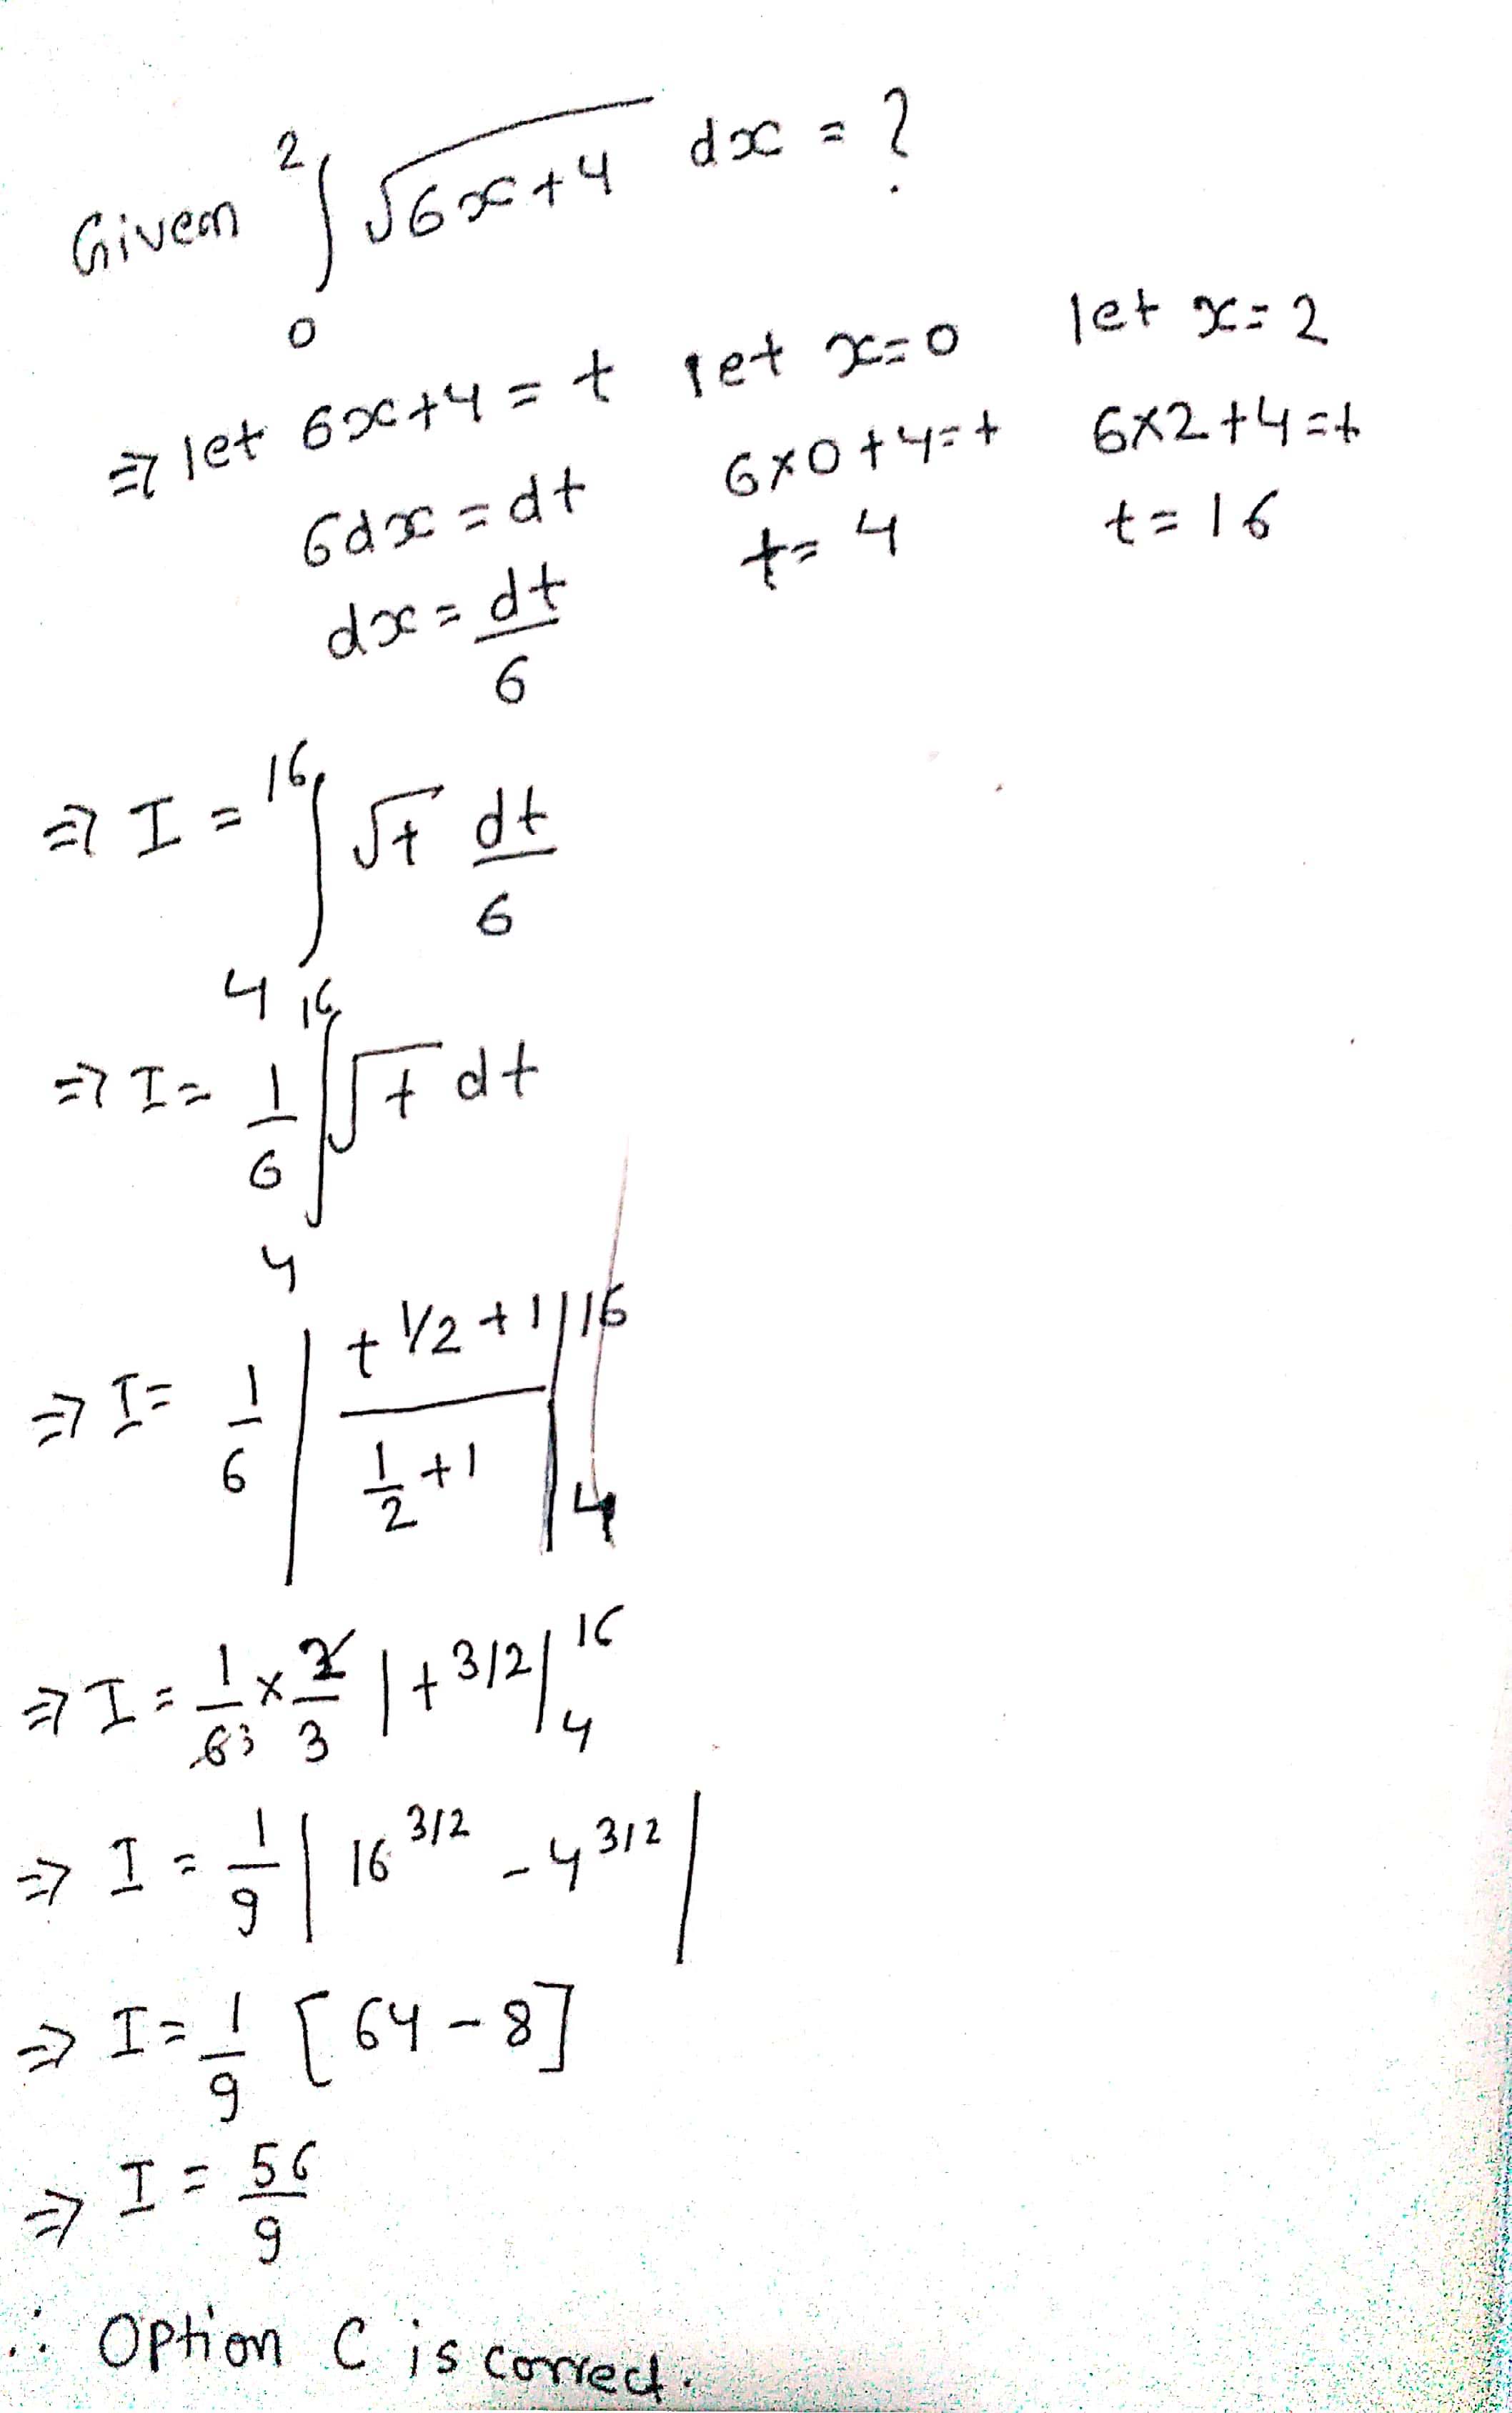 Given ²∫₀ √6x+4 dx = ?
⇒ let 6x+4 = t let x=0 let x=2
6dx = dt 6×0+4=t 6×2+4=t
dx = dt/6 t=4 t=16
⇒ I = ¹⁶∫₄ √t dt/6
⇒ I = 1/6 ¹⁶∫₄ √t dt
⇒ I = 1/6 | t^(1/2+1) / (1/2+1) |₄¹⁶
⇒ I = 1/6 3 × 2/3 | t^3/2 |₄¹⁶
⇒ I = 1/9 | 16^3/2 - 4^3/2 |
⇒ I = 1/9 [64-8]
⇒ I = 56/9
∴ Option C is correct.